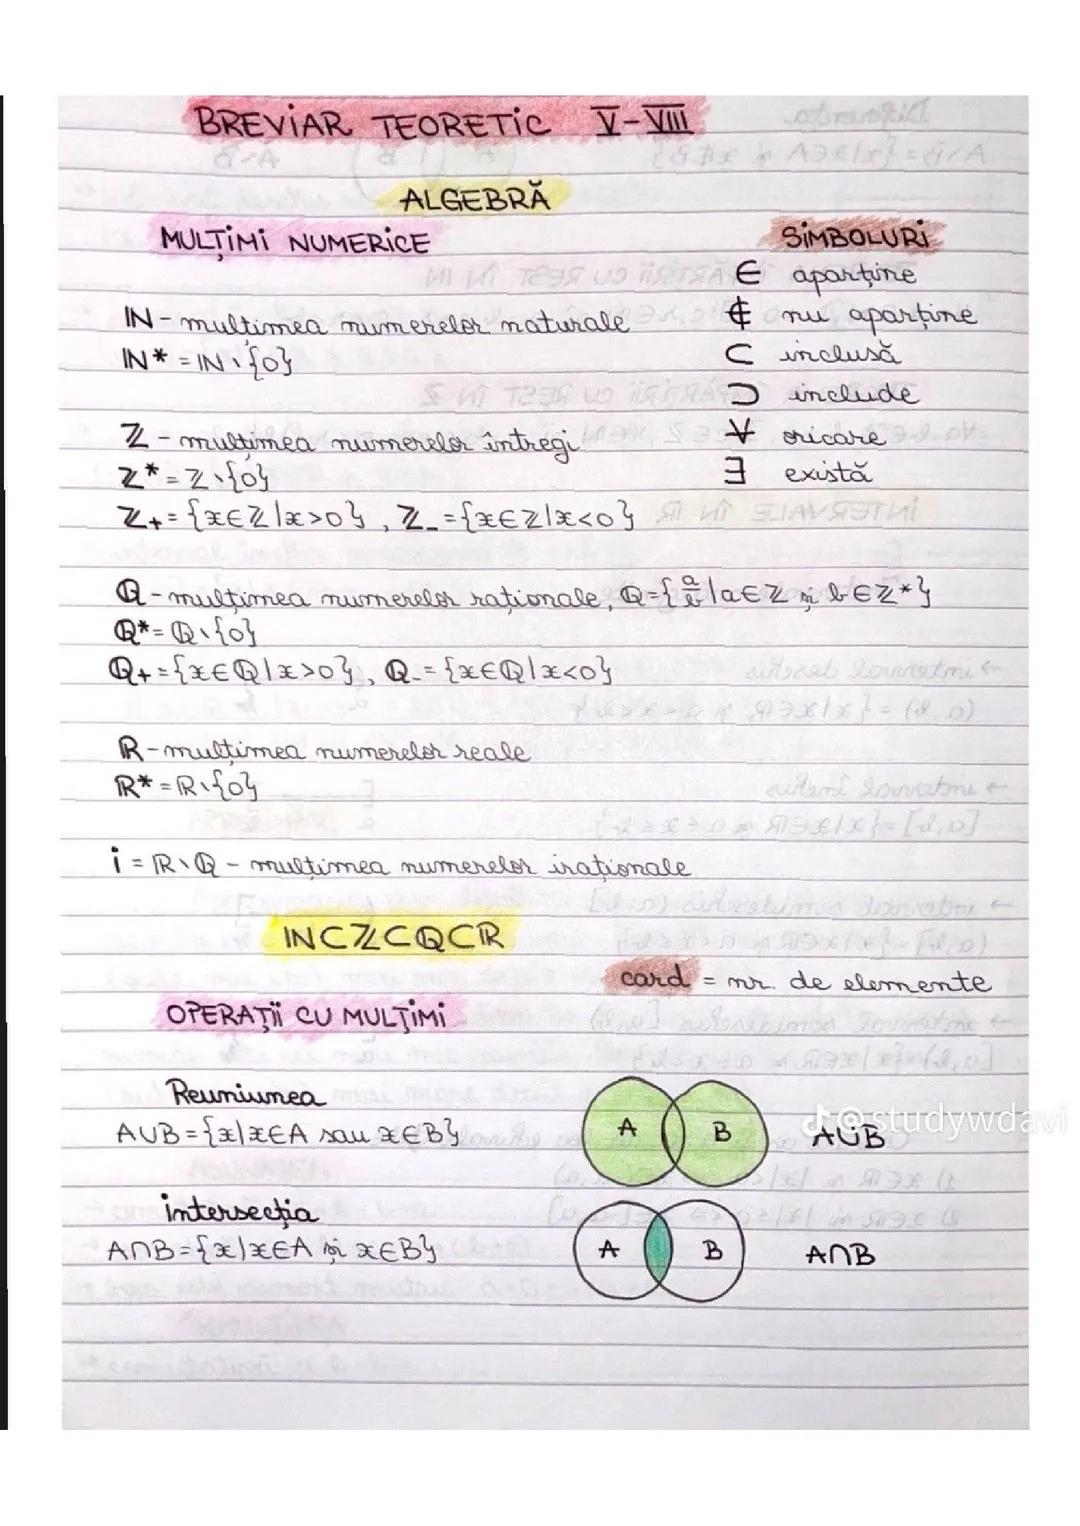 BREVIAR TEORETIC V-VIII
ALGEBRĂ
MULȚIMI NUMERICE
SIMBOLURI
∈ aparține
IN - mulțimea numerelor naturale
∉ nu aparține
IN* = IN \ {0}
⊂ inclusă
⊃ include
ℤ - mulțimea numerelor întregi
∀ oricare
ℤ* = ℤ \ {0}
∃ există
ℤ+ = {x∈ℤ|x>0}, ℤ_ = {x∈ℤ|x<0}
ℚ - mulțimea numerelor raționale, ℚ = {a/b | a∈ℤ și b∈ℤ*}
ℚ* = ℚ \ {0}
ℚ+ = {x∈ℚ|x>0}, ℚ_ = {x∈ℚ|x<0}
ℝ - mulțimea numerelor reale
ℝ* = ℝ \ {0}
i = ℝ \ ℚ - mulțimea numerelor iraționale
IN⊂ℤ⊂ℚ⊂ℝ
card = nr. de elemente
OPERAȚII CU MULȚIMI
Reuniunea
A∪B = {x|x∈A sau x∈B}
A B A∪B
@studywdavi
intersecția
A∩B = {x|x∈A și x∈B}
A B A∩B